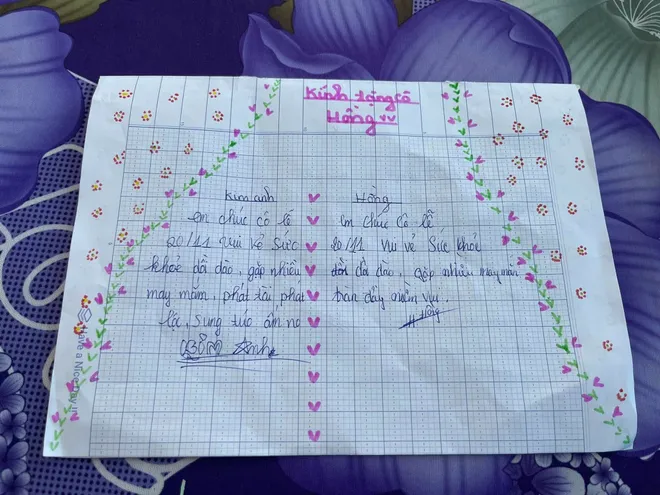 Kính tặng cô
Hồng vv
Kim anh
em chúc cô lễ
20/11 vui vẻ sức
khoẻ dồi dào, gặp nhiều
may mắm, phát tài phát
lộc, sung túc ấm no
Kim Anh
Hồng
em chúc cô lễ
20/11 vui vẻ sức khỏe
dồi dào, gặp nhiều may mắn
tràn đầy niềm vui.
Hồng
Have a Nice Day!!!